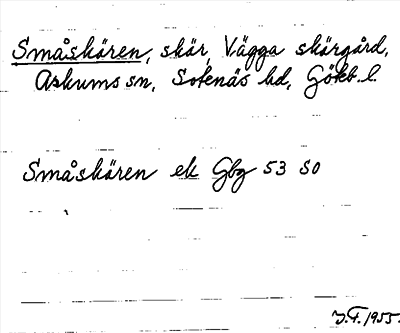 Småskären, skär, Vägga skärgård,
Askums sn, Sotenäs hd, Götb. l.
Småskären ek Gbg 53 SO
J.F. 1955.